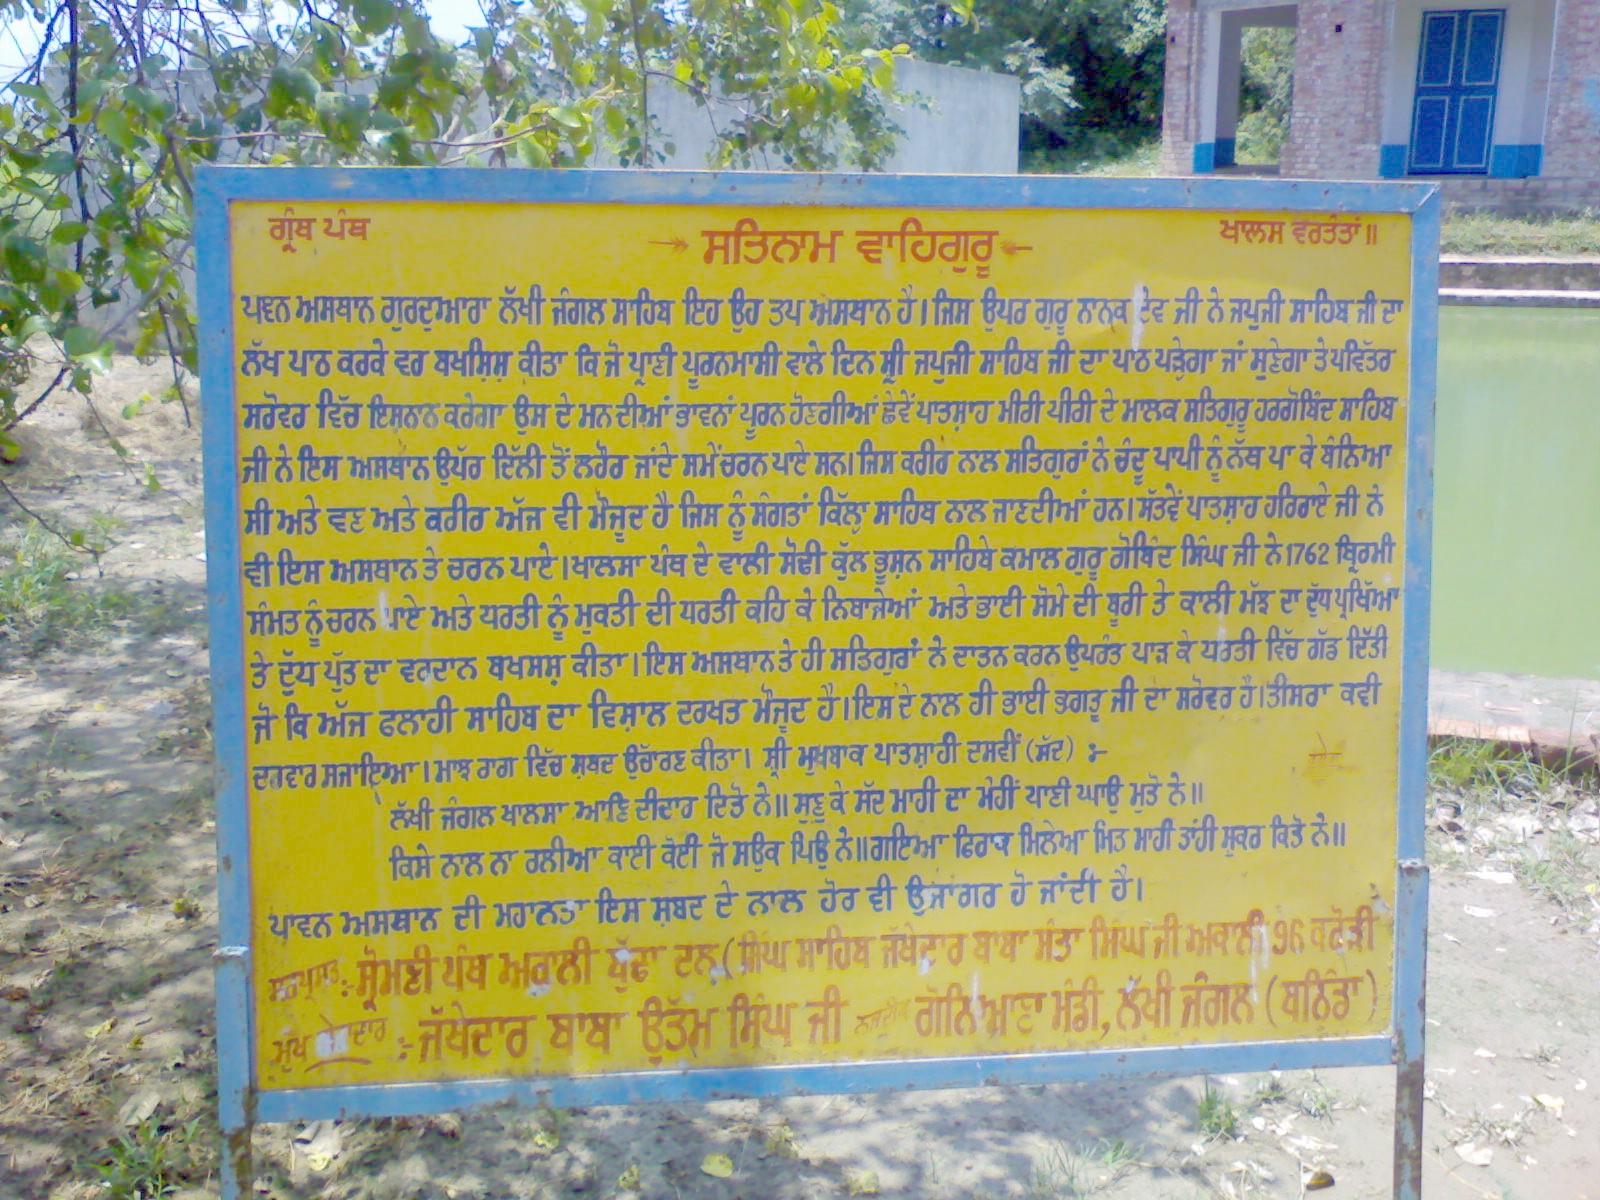 ਗ੍ਰੰਥ ਪੰਥ ਸਤਿਨਾਮ ਵਾਹਿਗੁਰੂ ਖਾਲਸ ਵਰਤੰਤਾਂ॥
ਪਵਨ ਅਸਥਾਨ ਗੁਰਦੁਆਰਾ ਲੱਖੀ ਜੰਗਲ ਸਾਹਿਬ ਇਹ ਉਹ ਤਪ ਅਸਥਾਨ ਹੈ। ਜਿਸ ਉਪਰ ਗੁਰੂ ਨਾਨਕ ਦੇਵ ਜੀ ਨੇ ਜਪੁਜੀ ਸਾਹਿਬ ਜੀ ਦਾ
ਲੱਖ ਪਾਠ ਕਰਕੇ ਵਰ ਬਖਸ਼ਿਸ਼ ਕੀਤਾ ਕਿ ਜੋ ਪ੍ਰਾਣੀ ਪੂਰਨਮਾਸੀ ਵਾਲੇ ਦਿਨ ਸ਼੍ਰੀ ਜਪੁਜੀ ਸਾਹਿਬ ਜੀ ਦਾ ਪਾਠ ਪੜ੍ਹੇਗਾ ਜਾਂ ਸੁਣੇਗਾ ਤੇ ਪਵਿੱਤਰ
ਸਰੋਵਰ ਵਿੱਚ ਇਸ਼ਨਾਨ ਕਰੇਗਾ ਉਸ ਦੇ ਮਨ ਦੀਆਂ ਭਾਵਨਾਂ ਪੂਰਨ ਹੋਣਗੀਆਂ ਛੇਵੇਂ ਪਾਤਸ਼ਾਹ ਮੀਰੀ ਪੀਰੀ ਦੇ ਮਾਲਕ ਸਤਿਗੁਰੂ ਹਰਗੋਬਿੰਦ ਸਾਹਿਬ
ਜੀ ਨੇ ਇਸ ਅਸਥਾਨ ਉਪੱਰ ਦਿੱਲੀ ਤੋਂ ਲਹੌਰ ਜਾਂਦੇ ਸਮੇਂ ਚਰਨ ਪਾਏ ਸਨ। ਜਿਸ ਕਰੀਰ ਨਾਲ ਸਤਿਗੁਰਾਂ ਨੇ ਚੰਦੂ ਪਾਪੀ ਨੂੰ ਨੱਥ ਪਾ ਕੇ ਬੰਨਿਆ
ਸੀ ਅਤੇ ਵਣ ਅਤੇ ਕਰੀਰ ਅੱਜ ਵੀ ਮੌਜੂਦ ਹੈ ਜਿਸ ਨੂੰ ਸੰਗਤਾਂ ਕਿੱਲ੍ਹਾ ਸਾਹਿਬ ਨਾਲ ਜਾਣਦੀਆਂ ਹਨ। ਸੱਤਵੇਂ ਪਾਤਸ਼ਾਹ ਹਰਿਰਾਏ ਜੀ ਨੇ
ਵੀ ਇਸ ਅਸਥਾਨ ਤੇ ਚਰਨ ਪਾਏ। ਖਾਲਸਾ ਪੰਥ ਦੇ ਵਾਲੀ ਸੋਢੀ ਕੁੱਲ ਭੂਸ਼ਨ ਸਾਹਿਬੇ ਕਮਾਲ ਗੁਰੂ ਗੋਬਿੰਦ ਸਿੰਘ ਜੀ ਨੇ 1762 ਬ੍ਰਿਕਮੀ
ਸੰਮਤ ਨੂੰ ਚਰਨ ਪਾਏ ਅਤੇ ਧਰਤੀ ਨੂੰ ਮੁਕਤੀ ਦੀ ਧਰਤੀ ਕਹਿ ਕੇ ਨਿਬਾਜੇਆਂ ਅਤੇ ਭਾਈ ਸੋਮੇ ਦੀ ਬੂਰੀ ਤੇ ਕਾਲੀ ਮੱਝ ਦਾ ਦੁੱਧ ਪ੍ਰਖਿੱਆ
ਤੇ ਦੁੱਧ ਪੁੱਤ ਦਾ ਵਰਦਾਨ ਬਖਸਸ਼ ਕੀਤਾ। ਇਸ ਅਸਥਾਨ ਤੇ ਹੀ ਸਤਿਗੁਰਾਂ ਨੇ ਦਾਤਨ ਕਰਨ ਉਪਰੰਤ ਪਾੜ ਕੇ ਧਰਤੀ ਵਿੱਚ ਗੱਡ ਦਿੱਤੀ
ਜੋ ਕਿ ਅੱਜ ਫਲਾਹੀ ਸਾਹਿਬ ਦਾ ਵਿਸ਼ਾਲ ਦਰਖਤ ਮੌਜੂਦ ਹੈ। ਇਸ ਦੇ ਨਾਲ ਹੀ ਭਾਈ ਭਗਤੂ ਜੀ ਦਾ ਸਰੋਵਰ ਹੈ। ਤੀਸਰਾ ਕਵੀ
ਦਰਵਾਰ ਸਜਾਇਆ। ਮਾਝ ਰਾਗ ਵਿੱਚ ਸ਼ਬਦ ਉਚਾੱਰਣ ਕੀਤਾ। ਸ਼੍ਰੀ ਮੁਖਬਾਕ ਪਾਤਸ਼ਾਹੀ ਦਸਵੀਂ (ਸੱਦ) :-
ਲੱਖੀ ਜੰਗਲ ਖਾਲਸਾ ਆਣਿ ਦੀਦਾਰ ਦਿਤੋ ਨੇ॥ ਸੁਣੁ ਕੇ ਸੱਦ ਮਾਹੀ ਦਾ ਮੇਹੀਂ ਪਾਣੀ ਘਾਉ ਮੁਤੋ ਨੇ॥
ਕਿਸੇ ਨਾਲ ਨਾ ਰਲੀਆ ਕਾਈ ਕੋਈ ਜੋ ਸਉਕ ਪਿਉ ਨੇ॥ ਗਇਆ ਫਿਰਾਕ ਮਿਲੇਆ ਮਿਤ ਮਾਹੀ ਤਾਂਹੀ ਸੁਕਰ ਕਿਤੋ ਨੇ॥
ਪਾਵਨ ਅਸਥਾਨ ਦੀ ਮਹਾਨਤਾ ਇਸ ਸ਼ਬਦ ਦੇ ਨਾਲ ਹੋਰ ਵੀ ਉਜਾਗਰ ਹੋ ਜਾਂਦੀ ਹੈ।
ਸਰਪ੍ਰਸਤ :- ਸ਼੍ਰੋਮਣੀ ਪੰਥ ਅਕਾਲੀ ਬੁੱਢਾ ਦਲ (ਸਿੰਘ ਸਾਹਿਬ ਜੱਥੇਦਾਰ ਬਾਬਾ ਸੰਤਾ ਸਿੰਘ ਜੀ ਅਕਾਲੀ 96 ਕਰੋੜੀ
ਮੁੱਖ :- ਜੱਥੇਦਾਰ ਬਾਬਾ ਉੱਤਮ ਸਿੰਘ ਜੀ ਨਜਦੀਕ ਗੋਨਿਆਣਾ ਮੰਡੀ, ਲੱਖੀ ਜੰਗਲ (ਬਠਿੰਡਾ)